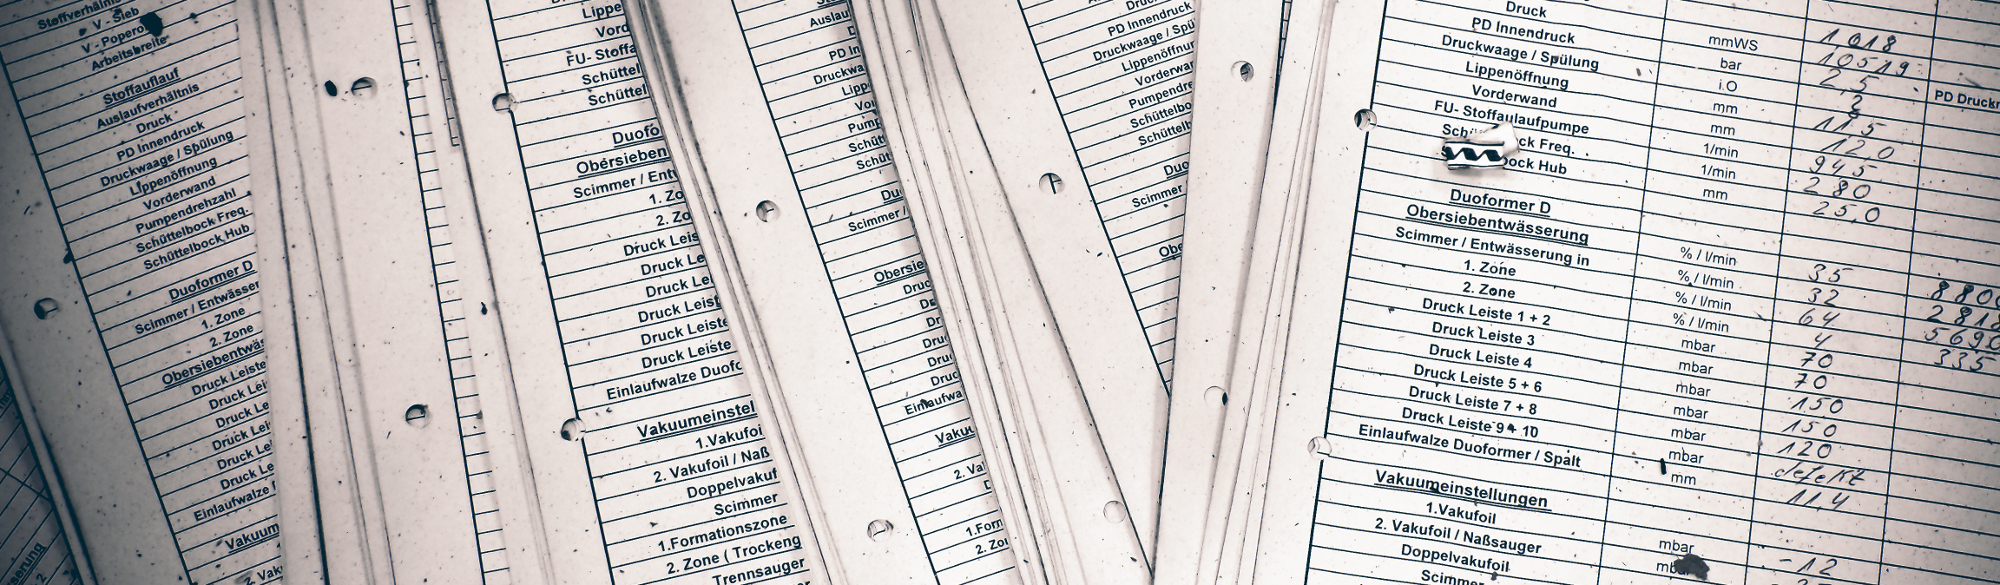 Stoffverhältnis
V - Sieb
V - Poperol
Arbeitsbreite
Stoffauflauf
Auslaufverhältnis
Druck
PD Innendruck
Druckwaage / Spülung
Lippenöffnung
Vorderwand
Pumpendrehzahl
Schüttelbock Freq.
Schüttelbock Hub
Duoformer D
Scimmer / Entwässer
1. Zone
2. Zone
Obersiebentwäs
Druck Leiste
Druck Lei
Druck Le
Druck Lei
Druck Le
Druck Le
Einlaufwalze
Vakuum
2. Vak
Lippe
Vord
FU- Stoffa
Schüttel
Schüttel
Duofo
Obersieben
Scimmer / Entw
1. Zo
2. Zo
Druck Leis
Druck Le
Druck Lei
Druck Leist
Druck Leiste
Druck Leiste
Einlaufwalze Duofo
Vakuumeinstel
1.Vakufoi
2. Vakufoil / Naß
Doppelvakuf
Scimmer
1.Formationszone
2. Zone ( Trockeng
Trennsauger
Auslau
PD In
Druckwa
Lipp
Vo
Pump
Schüt
Schüt
Duo
Scimmer /
Obersie
Druc
Dr
Dr
Dru
Dru
Druc
Einlaufwa
Vakuu
2. Va
1.Forn
2. Zo
Druc
PD Innendruck
Druckwaage / Spü
Lippenöffnun
Vorderwan
Pumpendre
Schüttelbo
Schüttelb
Duo
Scimmer
Obe
Druck
PD Innendruck mmWS 1018
Druckwaage / Spülung bar 10519
Lippenöffnung i.O 2,5 PD Druckr
Vorderwand mm 2
FU- Stoffaulaufpumpe mm 11,5
ck Freq. 1/min 12,0
ock Hub 1/min 945
mm 280
25,0
Duoformer D
Obersiebentwässerung
Scimmer / Entwässerung in % / l/min
1. Zone % / l/min 35 880
2. Zone % / l/min 32 281
Druck Leiste 1 + 2 % / l/min 64 5690
Druck Leiste 3 mbar 4 335
Druck Leiste 4 mbar 70
Druck Leiste 5 + 6 mbar 70
Druck Leiste 7 + 8 mbar 150
Druck Leiste 9 + 10 mbar 150
Einlaufwalze Duoformer / Spalt mbar 120
mm defekt
11,4
Vakuumeinstellungen
1.Vakufoil
2. Vakufoil / Naßsauger
Doppelvakufoil mbar -12
Scimmer